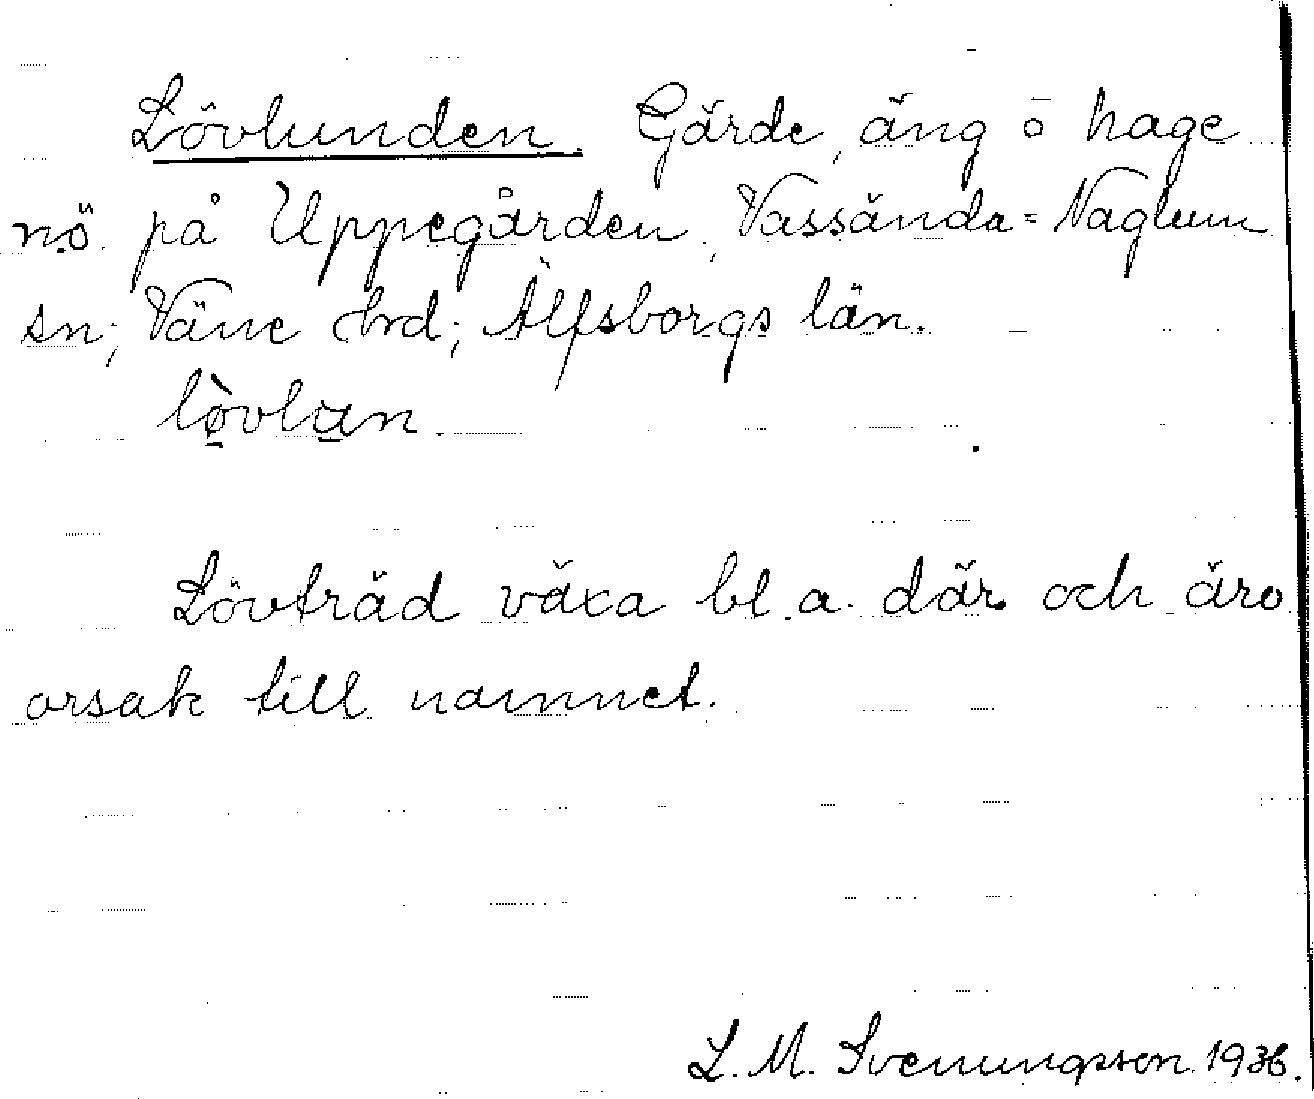 Lövlunden. Gärde, äng o hage
nö. på Uppegården, Vassända=Naglum
sn; Väne hrd; Älfsborgs län.
lø̀vlan.
Lövträd växa bl. a. där och äro
orsak till namnet.
L. M. Svenungsson. 1936.